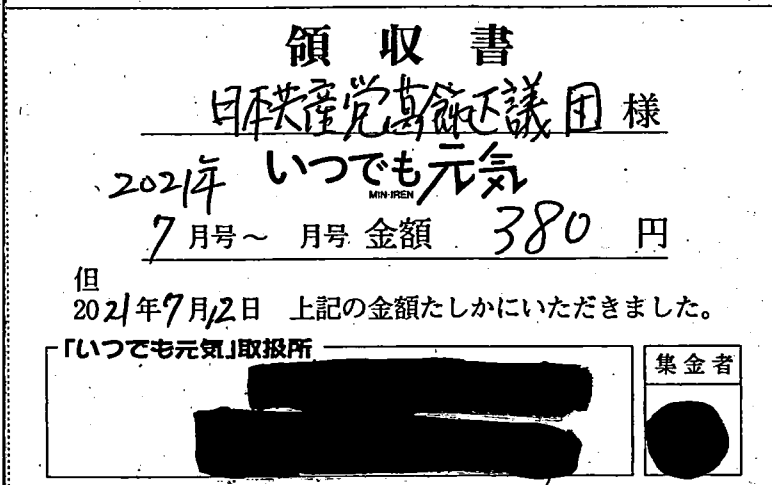 領収書
日本共産党葛飾区議団 様
2021年 いつでも元気
MIN-IREN
7月号～ 月号 金額 380 円
但
2021年7月12日 上記の金額たしかにいただきました。
「いつでも元気」取扱所
集金者